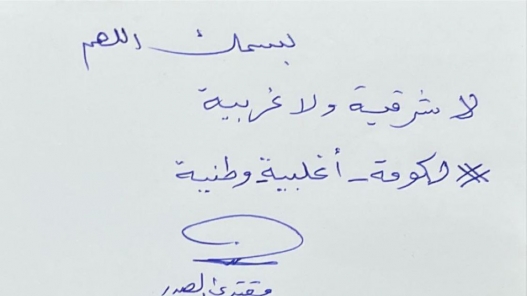 بسمك اللهم
لا شرقية ولا غربية
حكومة - أغلبية - وطنية
مقتدى الصدر